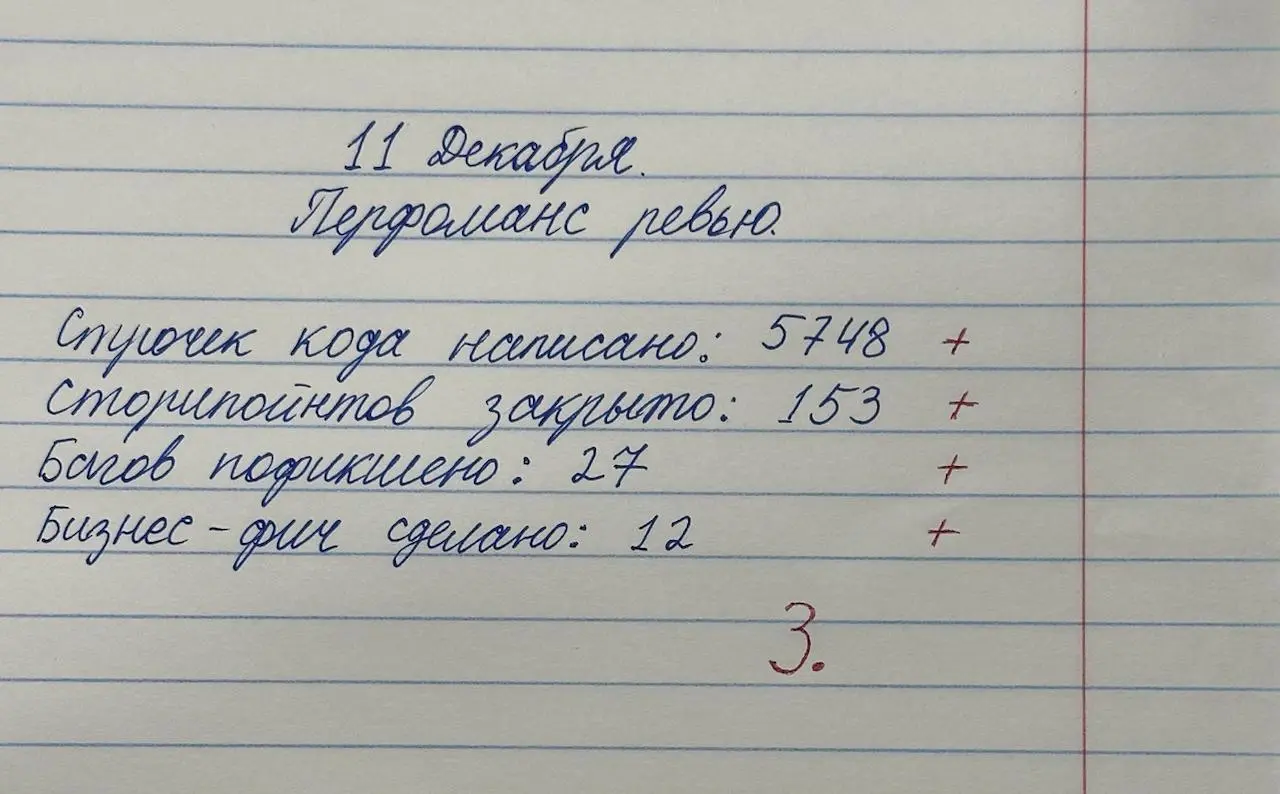 11 Декабря.
Перфоманс ревью.
Строчек кода написано: 5748 +
Сторипойнтов закрыто: 153 +
Багов пофикшено: 27 +
Бизнес-фич сделано: 12 +
3.